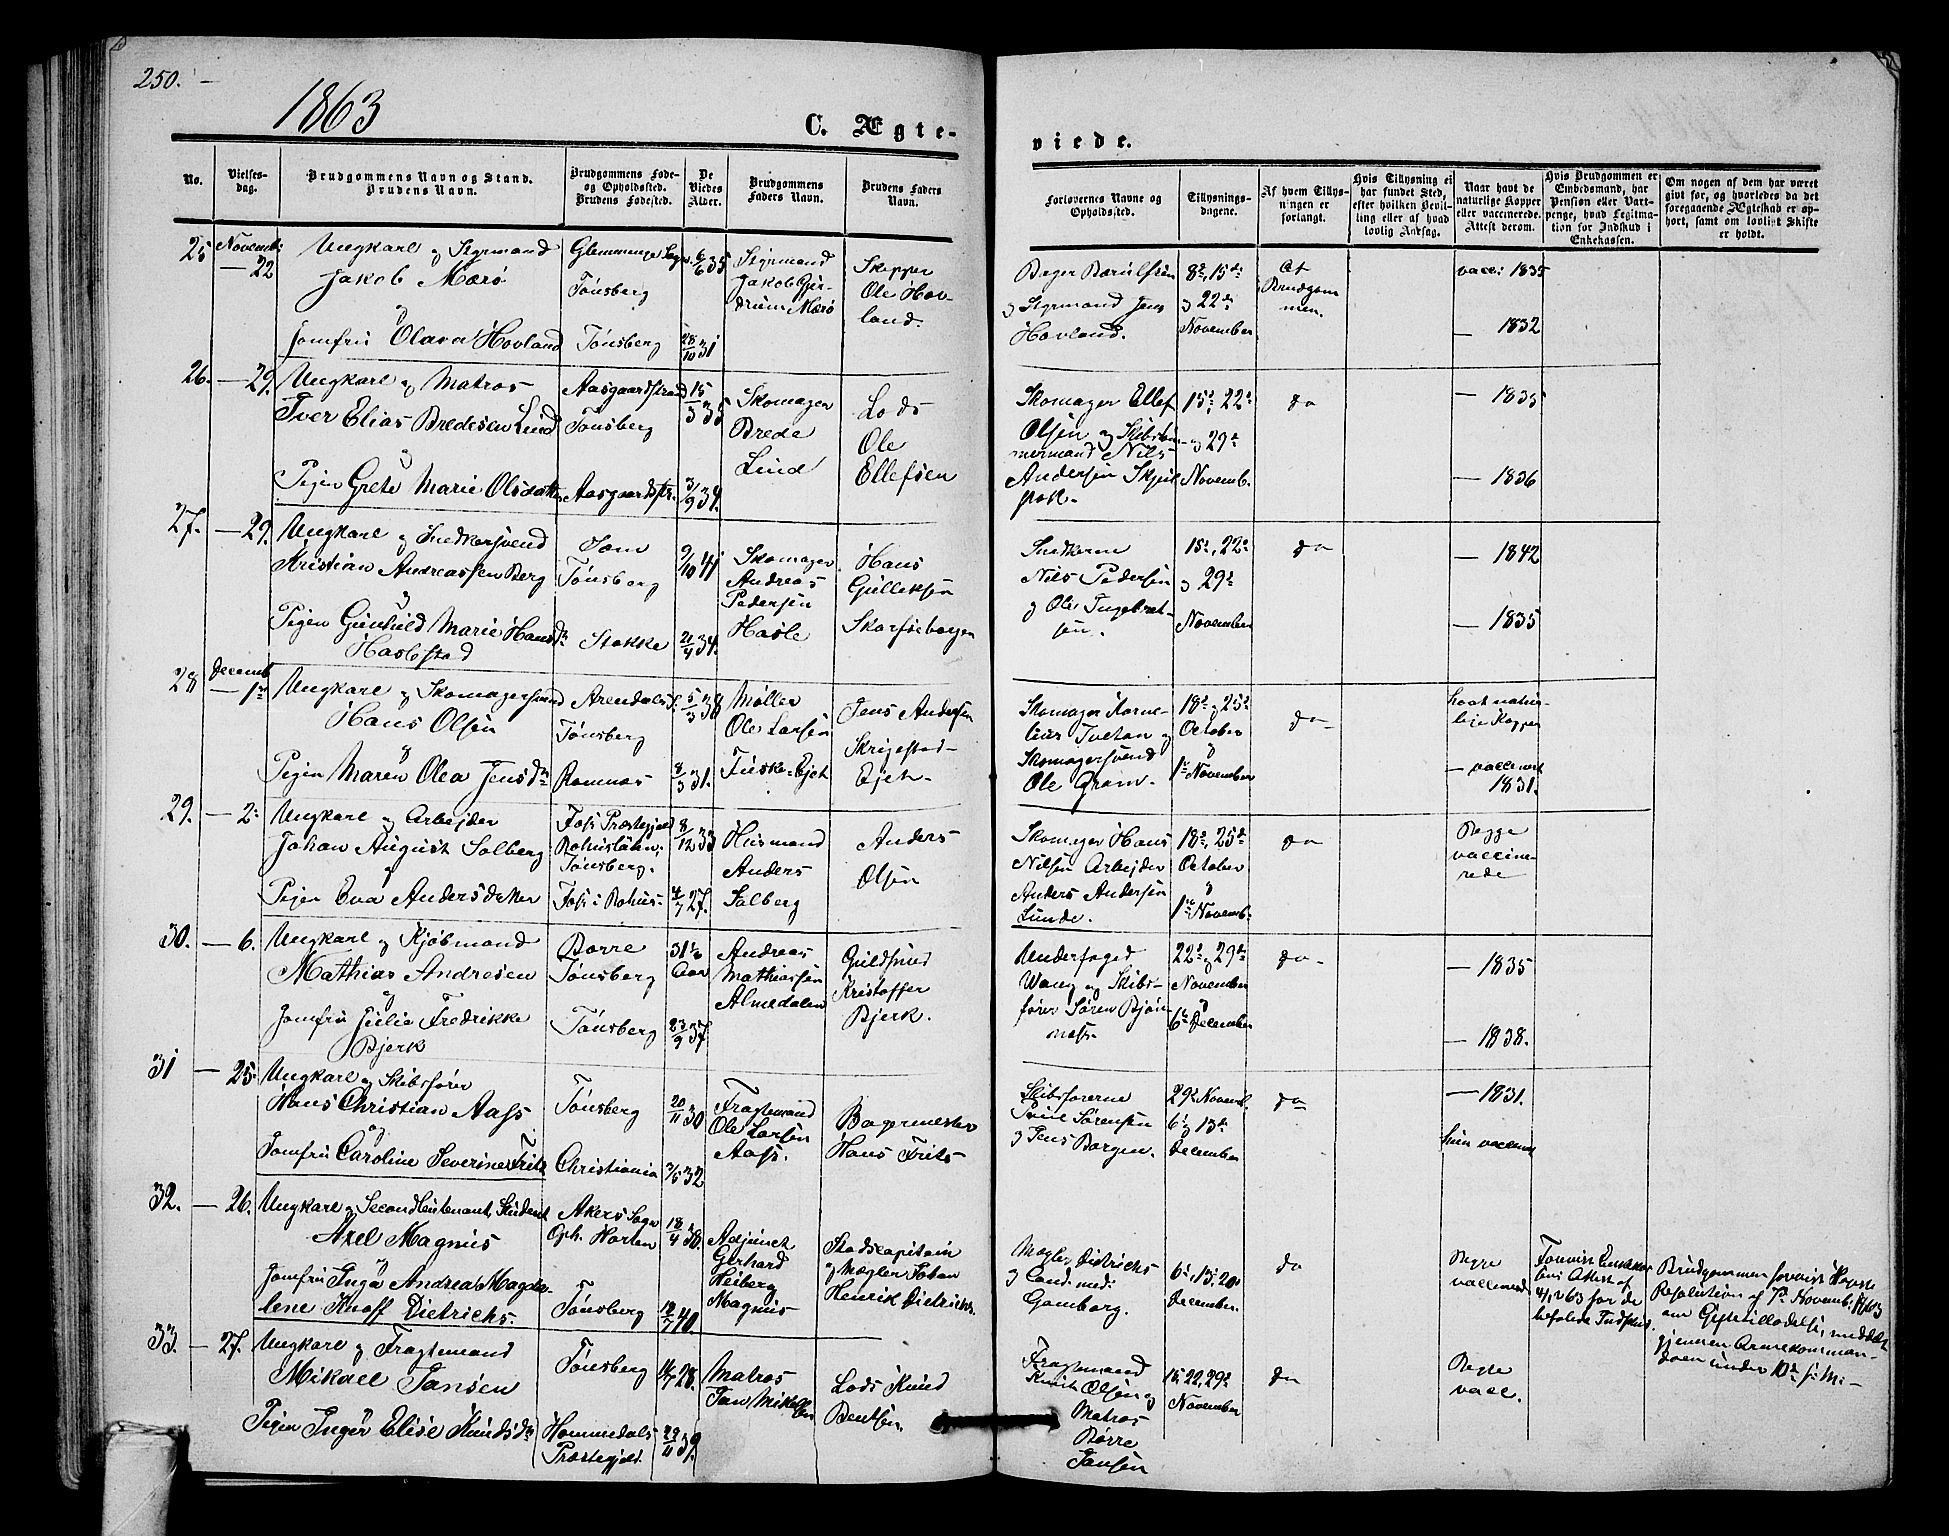 250. —
1863
C. Ægte-
viede.
No.
Vielses-
dag.
Brudgommens Navn og Stand.
Brudens Navn.
Brudgommens Føde-
og Opholdssted.
Brudens Fødested.
De
Viedes
Alder.
Brudgommens
Faders Navn.
Brudens Faders
Navn.
Forlovernes Navne og
Opholdssted.
Tillysnings-
dagene.
Af hvem Tillys-
ningen er
forlangt.
Hvis Tillysning ei
har fundet Sted,
efter hvilken Bevil-
ling eller af hvad
lovlig Aarsag.
Naar havt de
naturlige Kopper
eller vaccinerede.
Attest derom.
Hvis Brudgommen er
Embedsmand, har
Pension eller Vart-
penge, hvad Legitima-
tion for Indskud i
Enkekassen.
Om nogen af dem har været
givt for, og hvorledes da det
foregaaende Ægteskab er op-
hørt, samt om lovligt Skifte
er holdt.
25 Novemb:
— 22
Ungkarl og Styrmand
Jakob Mærø
og
Jomfru Olava Hovland
Tønsberg
Tønsberg
6/6 35
28/10 31
Styrmand
Jakob Gjer-
drum Mærø
Skipper
Ole Hov-
land.
og Styrmand Jens
Hovland.
8de, 15de
og 22de
November
Af
Brudgom-
men.
vacc: 1835
— 1832
26. — 29.
Ungkarl og Matros
Iver Elias Bredesen Lind
og
Pigen Grete Marie Olsdatter
Aasgaardstrand
Tønsberg
Aasgaardstr.
15/3 35
3/9 34.
Skomager
Brede
Lind
Lods
Ole
Ellefsen
Skomager Ellef
Olsen og Skibstøm-
mermand Nils
Andersen
15de, 22de
og 29de
Novemb.
do
— 1835
— 1836
27. — 29.
Ungkarl og Snedkersvend
Kristian Andreassen Berg
og
Pigen Gunhild Marie Hansdr
Haslestad
Sem
Tønsberg
Stokke
9/10 41
21/4 34.
Skomager
Andreas
Pedersen
Hasle
Hans
Gulleksen
Snedkerne
Nils Pedersen
og Ole Ingebret-
sen.
15de, 22de
og 29de
November
do
— 1842
— 1835
28 Decemb
— 1ste
Ungkarl og Skomagersvend
Hans Olsen
og
Pigen Maren Olea Jensdr
Tønsberg
Ramnæs
5/3 38
8/3 31.
Møller
Ole Larsen
Jens Andersen
Skrigestad-
Ejet-
Skomager Korne-
lius Tveten og
Skomagersvend
Ole Gram.
18de og 25de
October
og
1ste November
do
havt natur-
lige Kopper
— vaccineret
1831.
29. — 2:
Ungkarl og Arbejder
Johan August Solberg
og
Pigen Eva Andersdatter
Foss Præstegjeld
Bohuslähn,
Tønsberg.
Foss i Bohus-
8/12 33
4/7 27.
Husmand
Anders
Solberg
Anders
Olsen
Skomager Hans
Nilsen Arbejder
Anders Andersen
Lunde.
18de, 25de
October
og
1ste Novemb.
do
Begge
vaccine-
rede
30. — 6.
Ungkarl og Kjøbmand
Mathias Andresen
og
Jomfru Julie Fredrikke
Bjerk
Borre
Tønsberg
Tønsberg
31½
Aar
23/9 37.
Andreas
Mathiassen
Almedalen
Guldsmed
Kristoffer
Bjerk.
Underfoged
Wang og Skibs-
fører Søren Bjøn-
næss.
22de og 29de
November
og
6te December
do-
— 1835
— 1838.
31 — 25.
Ungkarl og Skibsfører
Hans Christian Aass
og
Jomfru Caroline Severine Fritz
Tønsberg
Christiania
20/11 30
3/5 32
Fragtemand
Ole Larsen
Aass.
Bagermester
Hans Frits
Skibsførerne
Sørensen
og Jens Borgen.
29de Novemb.
6te og 13de
December
do
— 1831.
hun vaccineret
32. — 26.
Ungkarl og Secondlieutenant, Student
Axel Magnus
og
Jomfru Inga Andrea Magda-
lene Knoff Dietrichs.
Akers Sogn
Oph. Horten
Tønsberg
18/4 38.
12/7 40.
Adjunct
Gerhard
Heiberg
Magnus
Stadscapitain
og Mægler Johan
Henrik Dietrichs.
Mægler Dietrichs
og Cand. med:
Gamborg.
6te, 13, 20de
December.
do
Begge
vaccinered
Forevist Enkekas-
sens Attest af
4/12 63 for de
befalede Indskud.
Brudgommen forevist Høieste
Resolution af 7de Novemb: 1863
om Giftetilladelse, meddelt
gjennem Armekomman-
doen under 10de s: M: —
33. — 27.
Ungkarl og Fragtemand
Mikael Jansen
og
Pigen Inger Elise Knudsdr
Tønsberg
Hommedals
Præstegjeld.
14/7 28.
22/11 39.
Matros
Jan Mikelsen
Lods Knud
Bentsen.
Fragtemand
Knut Olsen og
Matros
Børre
Jansen
15. 22. 29de
November
do
Begge
vacc.